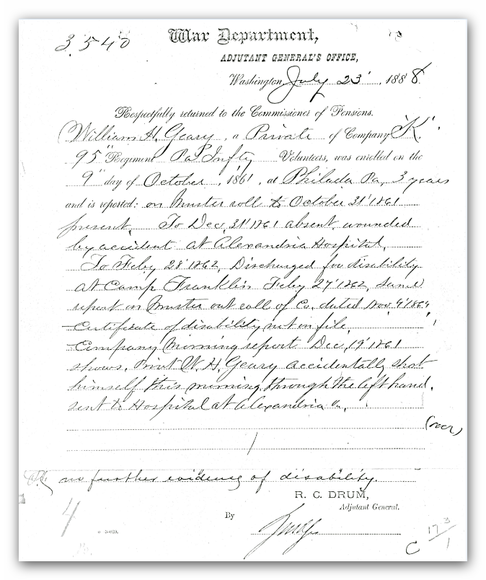 3540
War Department,
ADJUTANT GENERAL'S OFFICE,
Washington, July 23', 1888
Respectfully returned to the Commissioner of Pensions.
William H. Geary, a Private of Company K'
95" Regiment Pa. Infty Volunteers, was enrolled on the
9" day of October, 1861, at Philada Pa, 3 years
and is reported: on Muster roll to October 31' 1861
present. To Dec, 31' 1861 absent, wounded
by accident at Alexandria Hospital.
To Feby 28' 1862, Discharged for disability
at Camp Franklin Feby 27' 1862, same
report on Muster out roll of Co. dated Nov. 4' 1864
Certificate of disability not on file.
Company Morning report Dec, 19' 1861
shows, Pvt W. H. Geary accidentally shot
himself this morning through the left hand,
sent to Hospital at Alexandria
(over)
no further evidence of disability.
R. C. DRUM,
Adjutant General.
By
4
C 173/1